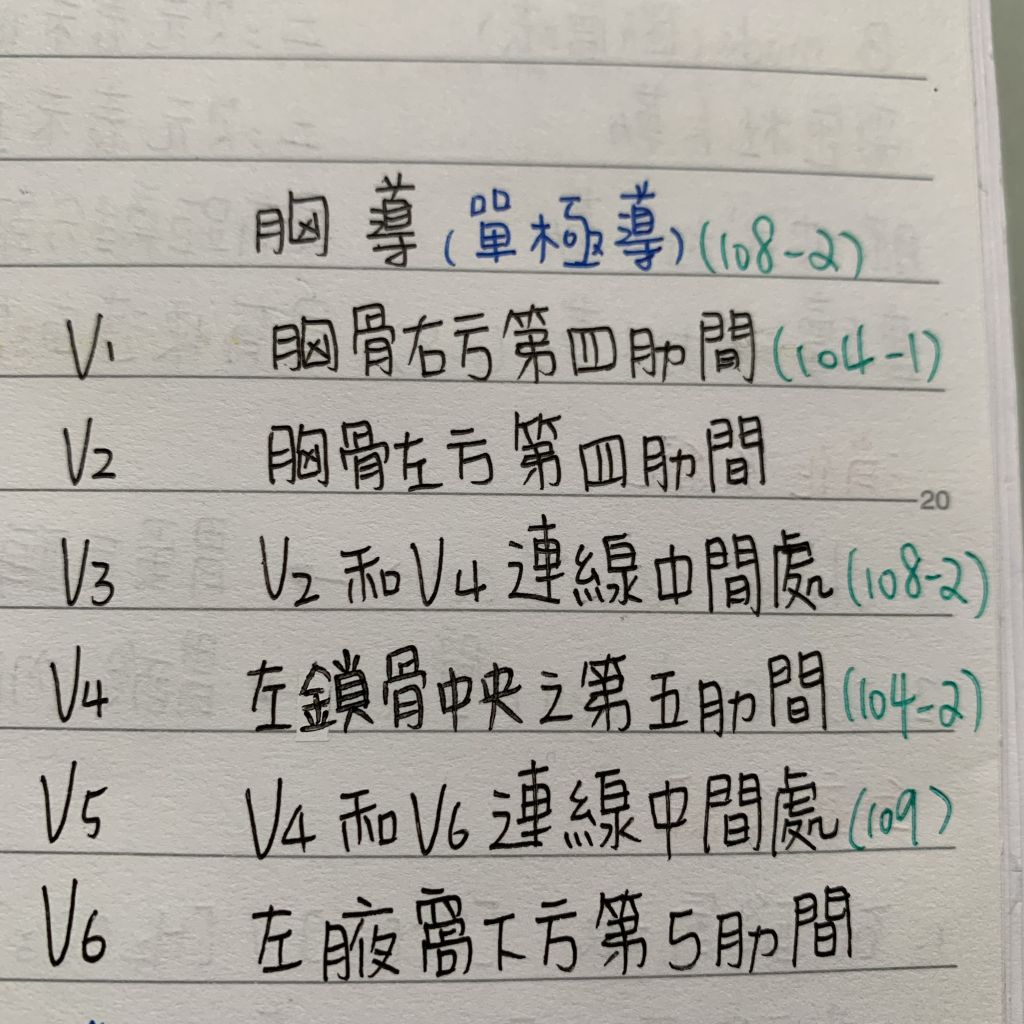 胸導(單極導)(108-2)
V1 胸骨右方第四肋間(104-1)
V2 胸骨左方第四肋間
20
V3 V2和V4連線中間處(108-2)
V4 左鎖骨中央之第五肋間(104-2)
V5 V4和V6連線中間處(109)
V6 左腋窩下方第5肋間